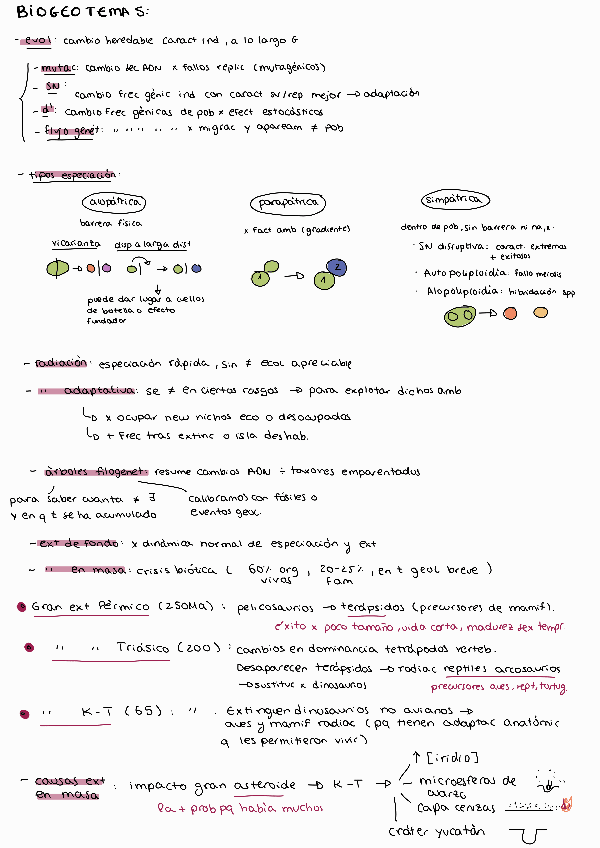 BIOGEO TEMA 5:
- evol: cambio heredable caract ind, a lo largo G
- mutac: cambio sec ADN x fallos replic (mutagénicos)
- SN: cambio frec génic ind con caract sv/rep mejor → adaptación
- d: cambio frec génicas de pob x efect estocásticos
- flujo genét: " " " " " x migrac y apaream ≠ pob
- tipos especiación:
alopátrica
parapátrica
simpátrica
barrera física
x fact amb (gradiente)
dentro de pob, sin barrera ni na,
vicarianta
disp a larga dist
· SN disruptiva: caract. extremos
+ exitosos
· Autopoliploidía: fallo meiosis
· Alopoliploidía: hibridación spp
1
1
2
puede dar lugar a cuellos
de botella o efecto
fundador
- radiación: especiación rápida, sin ≠ ecol apreciable
- " adaptativa: se ≠ en ciertos rasgos → para explotar dichos amb
↳ x ocupar new nichos eco o desocupados
↳ + frec tras extinc o isla deshab.
- árboles filogenet: resume cambios ADN ÷ taxones emparentados
para saber cuanta ≠ ∃
y en q t se ha acumulado
calibramos con fósiles o
eventos geol.
- ext de fondo: x dinámica normal de especiación y ext
- " en masa: crisis biótica ( 60% org vivos, 20-25% fam, en t geol breve )
Gran ext Pérmico (250MA): pelicosaurios → terápsidos (precursores de mamif).
éxito x poco tamaño, vida corta, madurez sex tempr
" " Triásico (200): cambios en dominancia tetrápodos verteb.
Desaparecen terápsidos → radiac reptiles arcosaurios
→ sustituc x dinosaurios
precursores aves, rept, tortug.
" K-T (65): ". Extinguen dinosaurios no avianos →
aves y mamif radiac (pq tienen adaptac anatómic
q les permitieron vivir)
- causas ext en masa: impacto gran asteroide → K-T →
la + prob pq había muchos
↑ [iridio]
microesferas de
cuarzo
capa cenizas
cráter yucatán